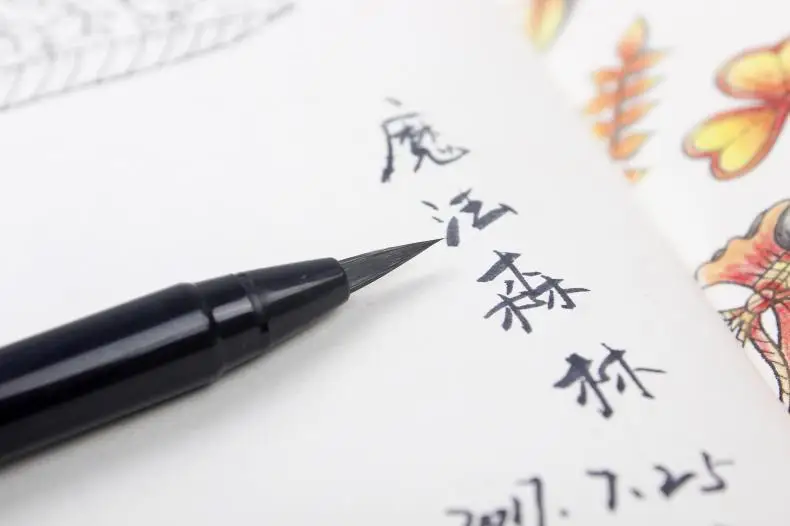 魔法森林
2017.7.25